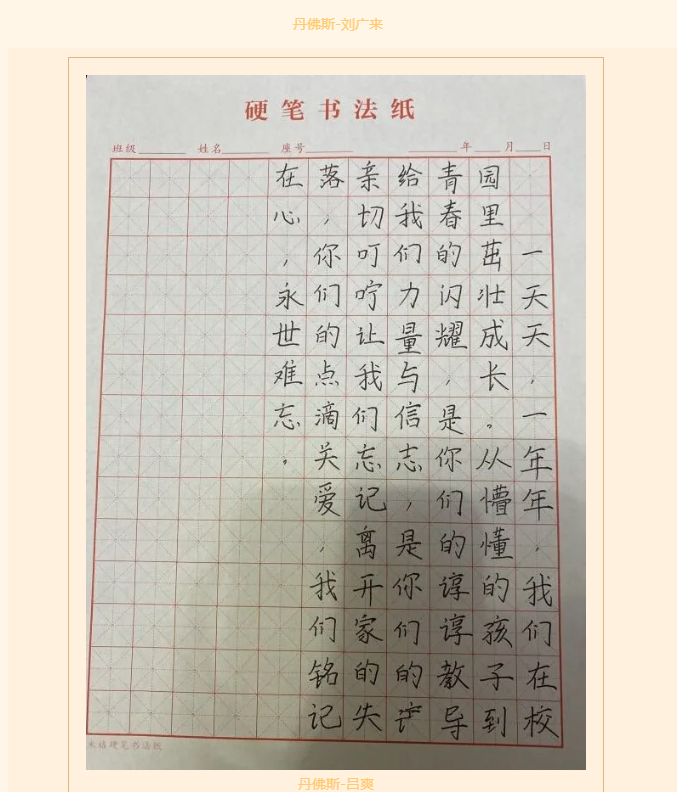 丹佛斯-刘广来
硬笔书法纸
班级 姓名 座号 年 月 日
一天天，一年年，我们在校
园里茁壮成长。从懵懂的孩子到
青春的闪耀，是你们的谆谆教导
给我们力量与信志，是你们的
亲切叮咛让我们忘记离开家的失
落，你们的点滴关爱，我们铭记
在心，永世难忘。
硬笔书法纸
丹佛斯-吕爽